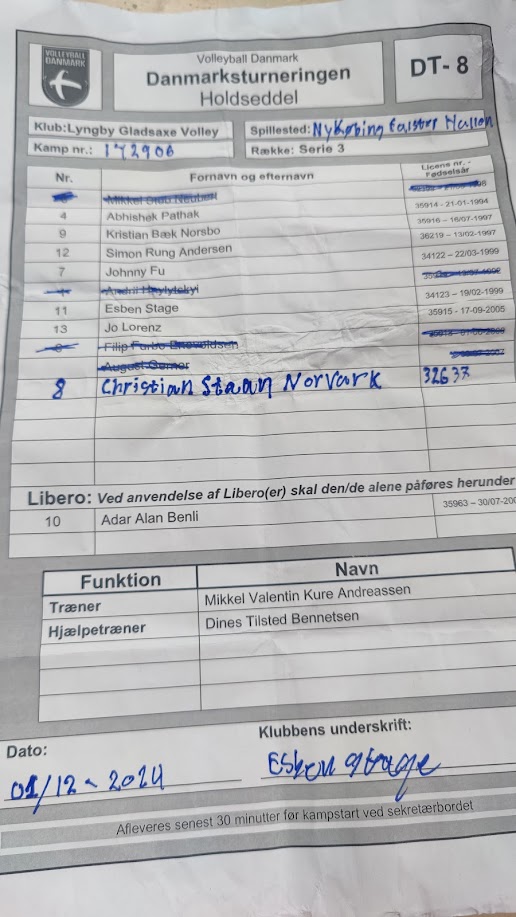 VOLLEYBALL
DANMARK
Volleyball Danmark
Danmarksturneringen
Holdseddel
DT- 8
Klub:Lyngby Gladsaxe Volley
Spillested: Nykøbing Falster Hallen
Kamp nr.: 172906
Række: Serie 3
Nr. Fornavn og efternavn Licens nr. - Fødselsår
Mikkel
4 Abhishek Pathak 35914 - 21-01-1994
9 Kristian Bæk Norsbo 35916 – 16/07-1997
12 Simon Rung Andersen 36219 – 13/02-1997
7 Johnny Fu 34122 – 22/03-1999
Andrii
11 Esben Stage 34123 – 19/02-1999
13 Jo Lorenz 35915 - 17-09-2005
Filip
August
8 Christian Staan Norvark 32637
Libero: Ved anvendelse af Libero(er) skal den/de alene påføres herunder
10 Adar Alan Benli 35963 – 30/07-200
Funktion Navn
Træner Mikkel Valentin Kure Andreassen
Hjælpetræner Dines Tilsted Bennetsen
Dato: Klubbens underskrift:
01/12 - 2024 Esben Stage
Afleveres senest 30 minutter før kampstart ved sekretærbordet